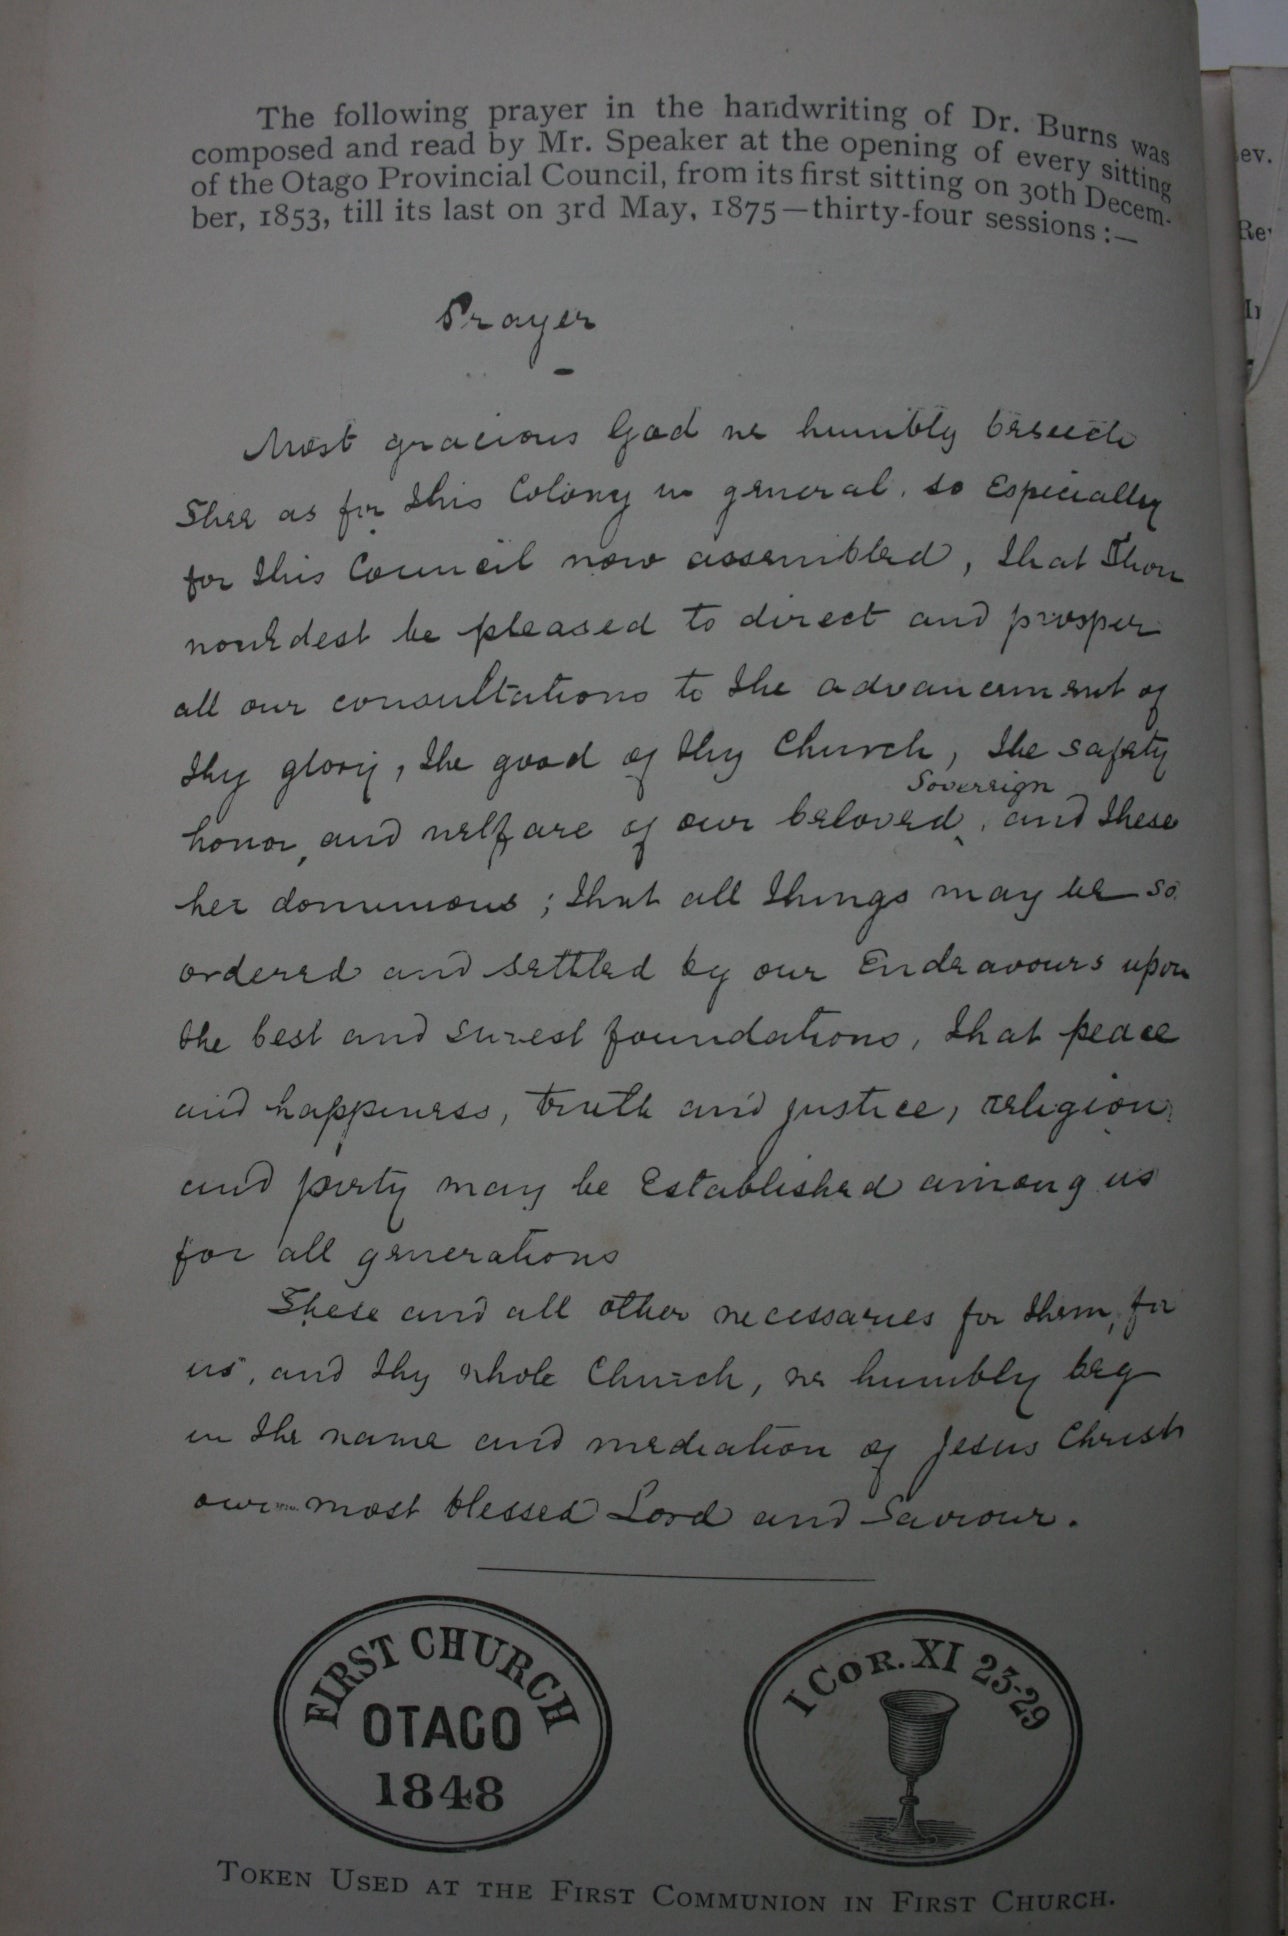 The following prayer in the handwriting of Dr. Burns was
composed and read by Mr. Speaker at the opening of every sitting
of the Otago Provincial Council, from its first sitting on 30th Decem-
ber, 1853, till its last on 3rd May, 1875—thirty-four sessions:—
Prayer
Most gracious God we humbly beseech
Thee as for this Colony in general, so Especially
for this Council now assembled, that Thou
wouldest be pleased to direct and prosper
all our consultations to the advancement of
thy glory, the good of thy Church, the safety
Sovereign
honor, and welfare of our beloved, and these
her dominions; that all things may be so
ordered and settled by our Endeavours upon
the best and surest foundations, that peace
and happiness, truth and justice, religion
and piety may be Established among us
for all generations
These and all other necessaries for them, for
us, and thy whole Church, we humbly beg
in the name and mediation of Jesus Christ
our most blessed Lord and Saviour.
FIRST CHURCH
OTAGO
1848
I COR. XI 23-29
TOKEN USED AT THE FIRST COMMUNION IN FIRST CHURCH.
ev.